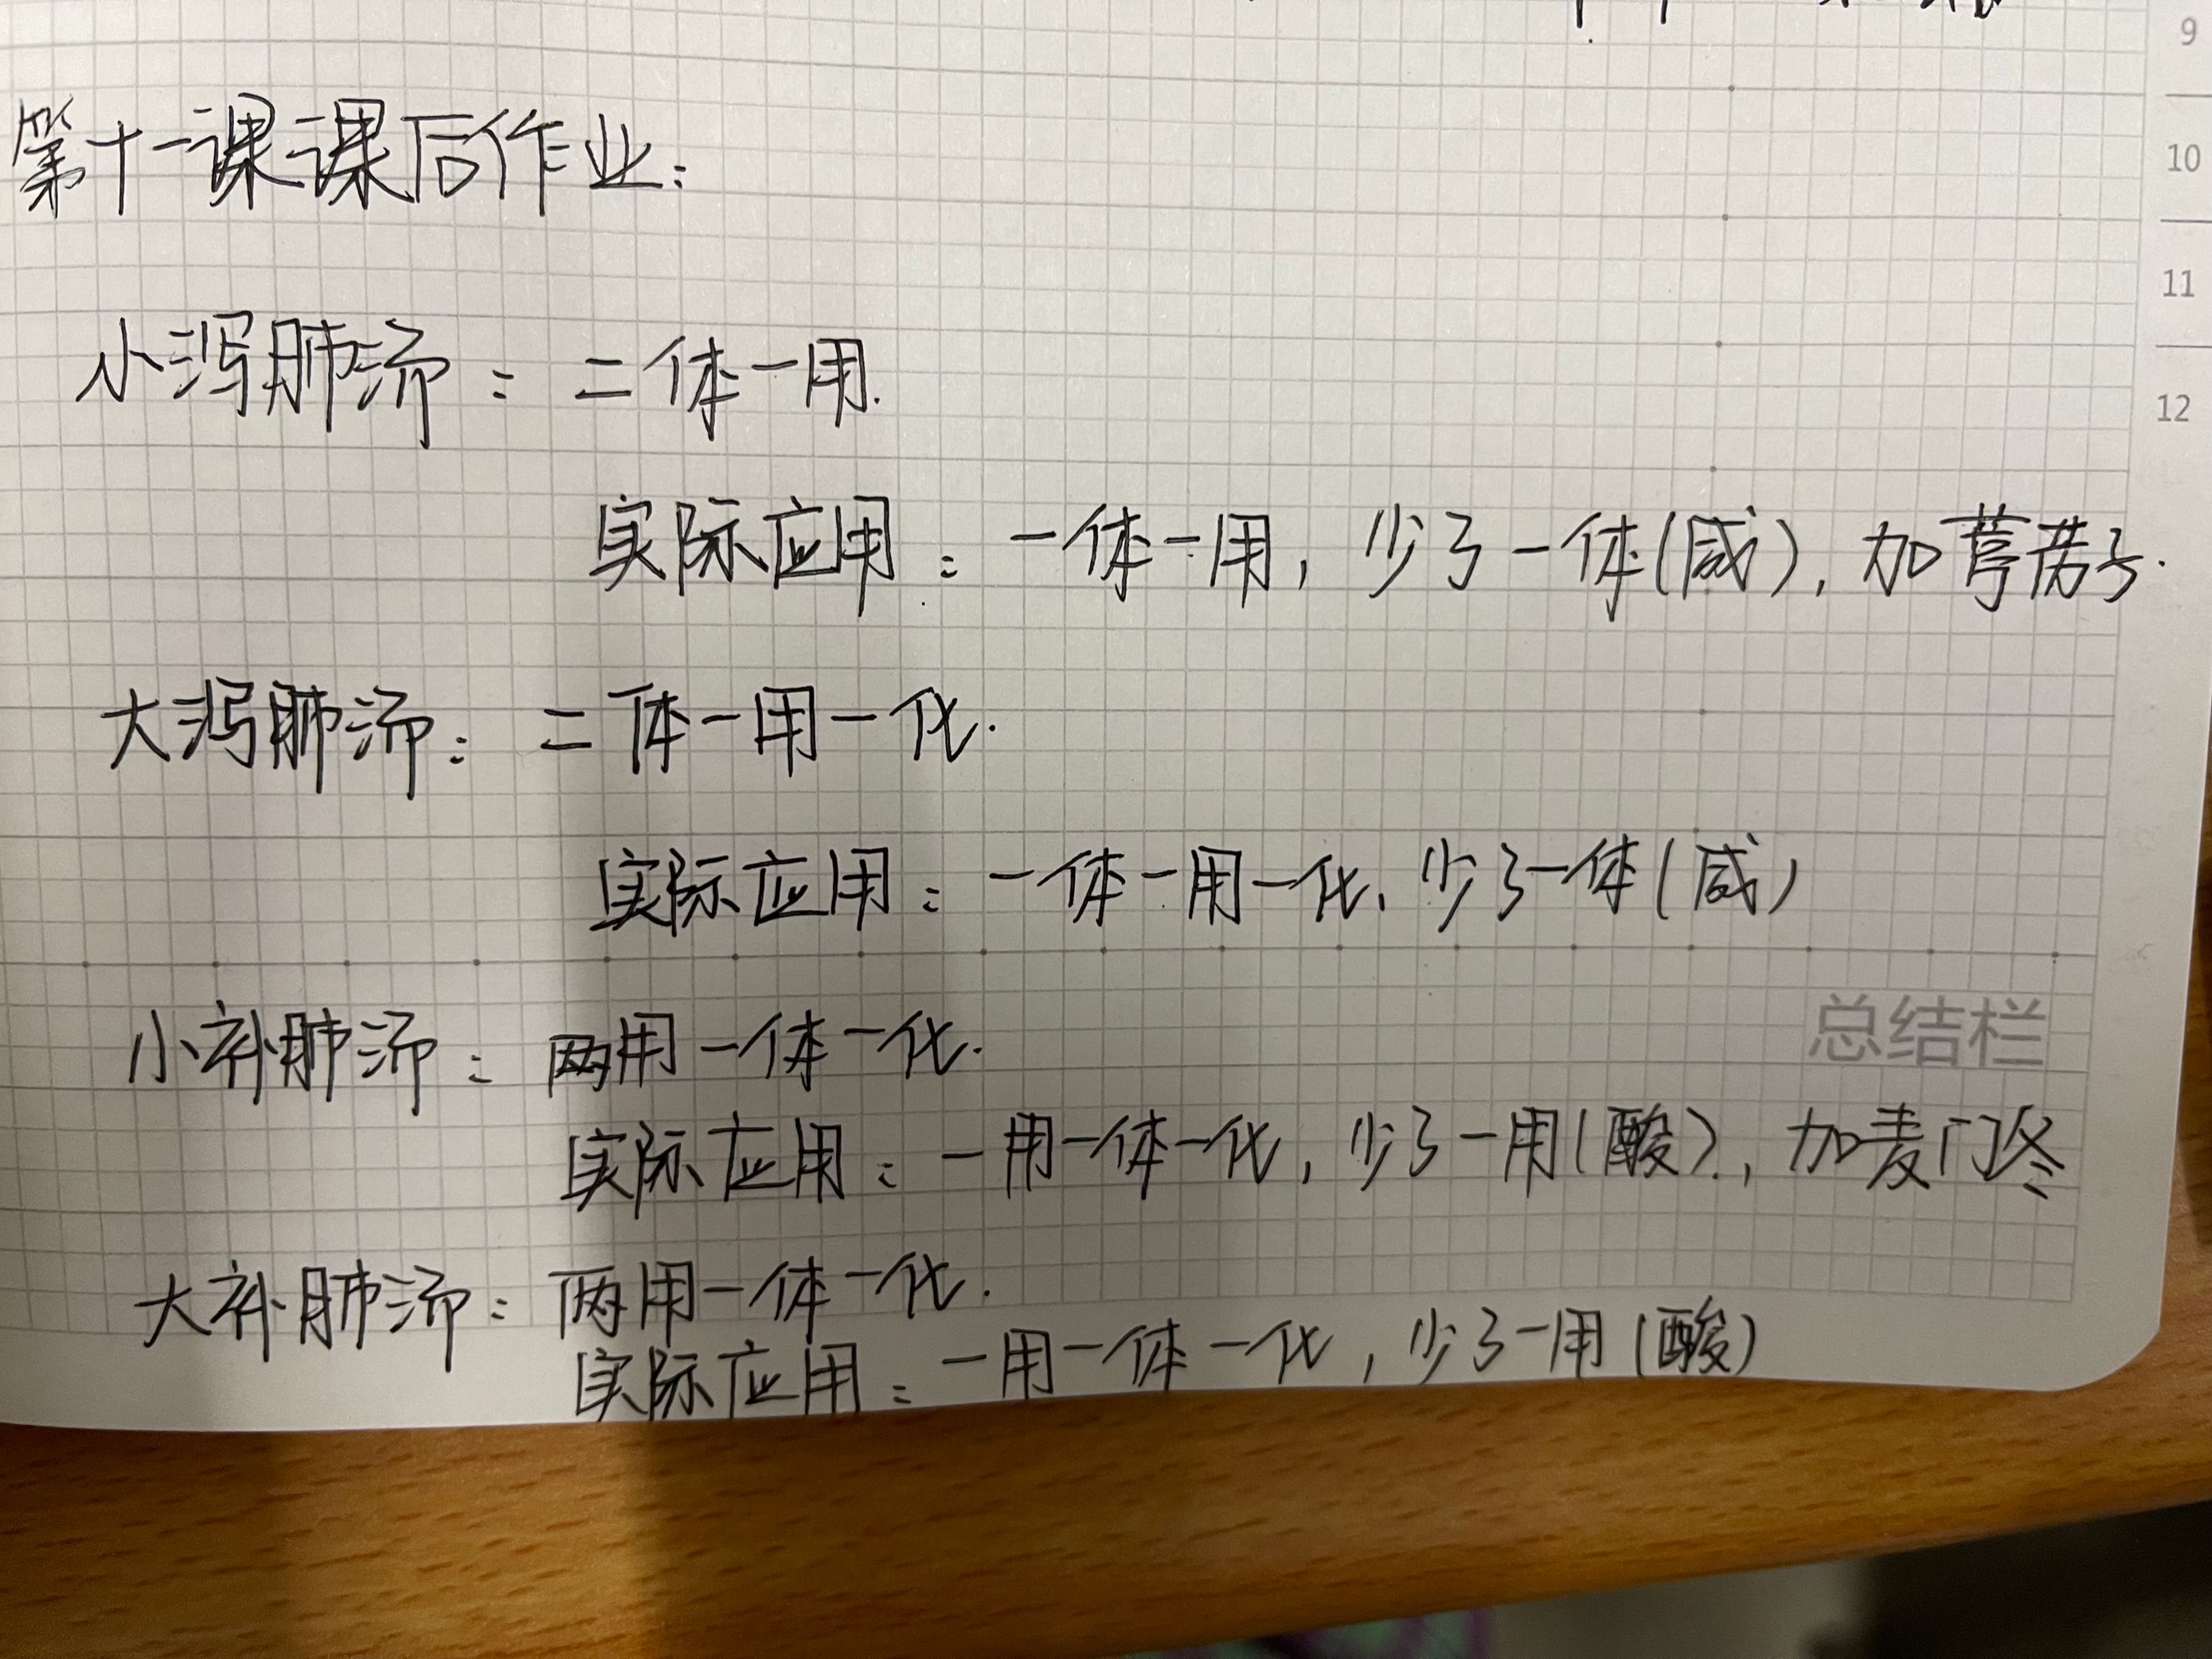 9
第十一课课后作业:
10
11
小泻肺汤: 二体一用.
12
实际应用: 一体一用, 少了一体(咸), 加葶苈子.
大泻肺汤: 二体一用一化.
实际应用: 一体一用一化, 少了一体(咸)
总结栏
小补肺汤: 两用一体一化.
实际应用: 一用一体一化, 少了一用(酸), 加麦门冬
大补肺汤: 两用一体一化.
实际应用: 一用一体一化, 少了一用(酸)